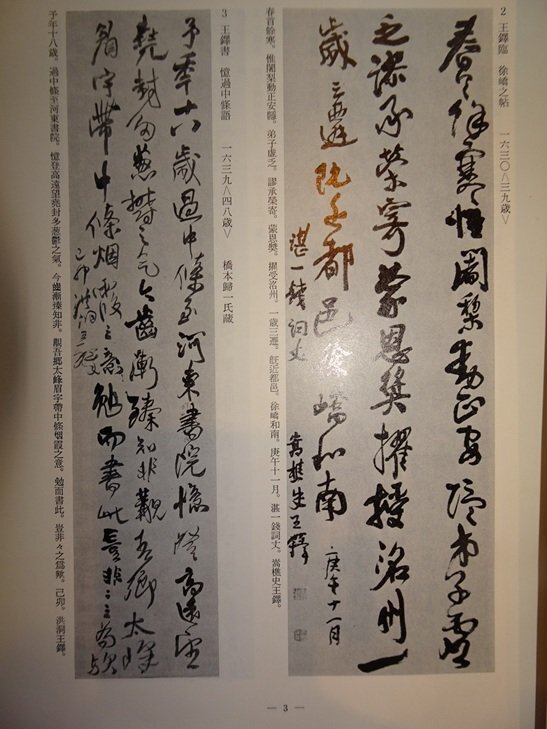 2 王鐸臨 徐嶠之帖 一六三〇〈三九歳〉
春首餘寒惟闍梨動正安隱弟子虛
乏謬承榮寄蒙恩奬擢授洺州一
歲三遷既近都邑徐嶠和南
庚午十一月
湛一錢詞丈
嵩樵史王鐸
春首餘寒。惟闍梨動正安隱。弟子虛乏。謬承榮寄。蒙恩奬。擢受洺州。一歲三遷。既近都邑。徐嶠和南。庚午十一月。湛一錢詞丈。嵩樵史王鐸。
3 王鐸書 憶過中條語 一六三九〈四八歳〉 橋本歸一氏蔵
予年十八歲過中條至河東書院憶登高遠望
堯封多葱鬱之氣今齒漸臻知非觀吾鄉太峰
眉宇帶中條烟霞之意勉而書此豈非々之為歟
己卯洪洞王鐸
予年十八歲。過中條至河東書院。憶登高遠望堯封多葱鬱之氣。今齒漸臻知非。觀吾鄉太峰眉宇帶中條烟霞之意。勉而書此。豈非々之爲歟。己卯。洪洞王鐸。
— 3 —